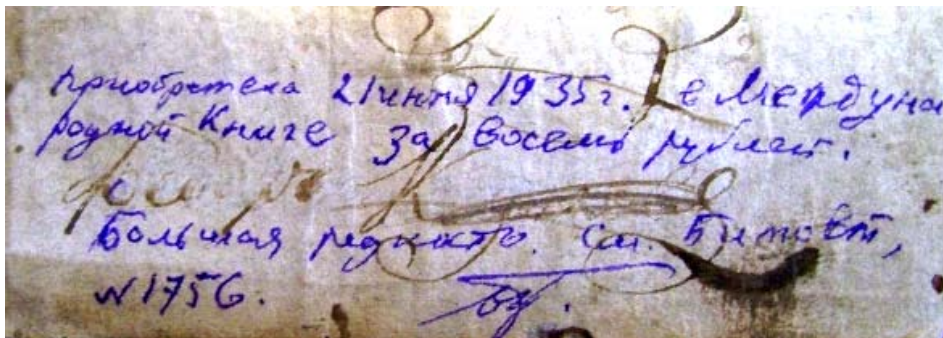 приобретена 21 июня 1935 г. в Междуна
родной Книге за восемь рублей.
Большая редкость. см. Битовт,
№1756.